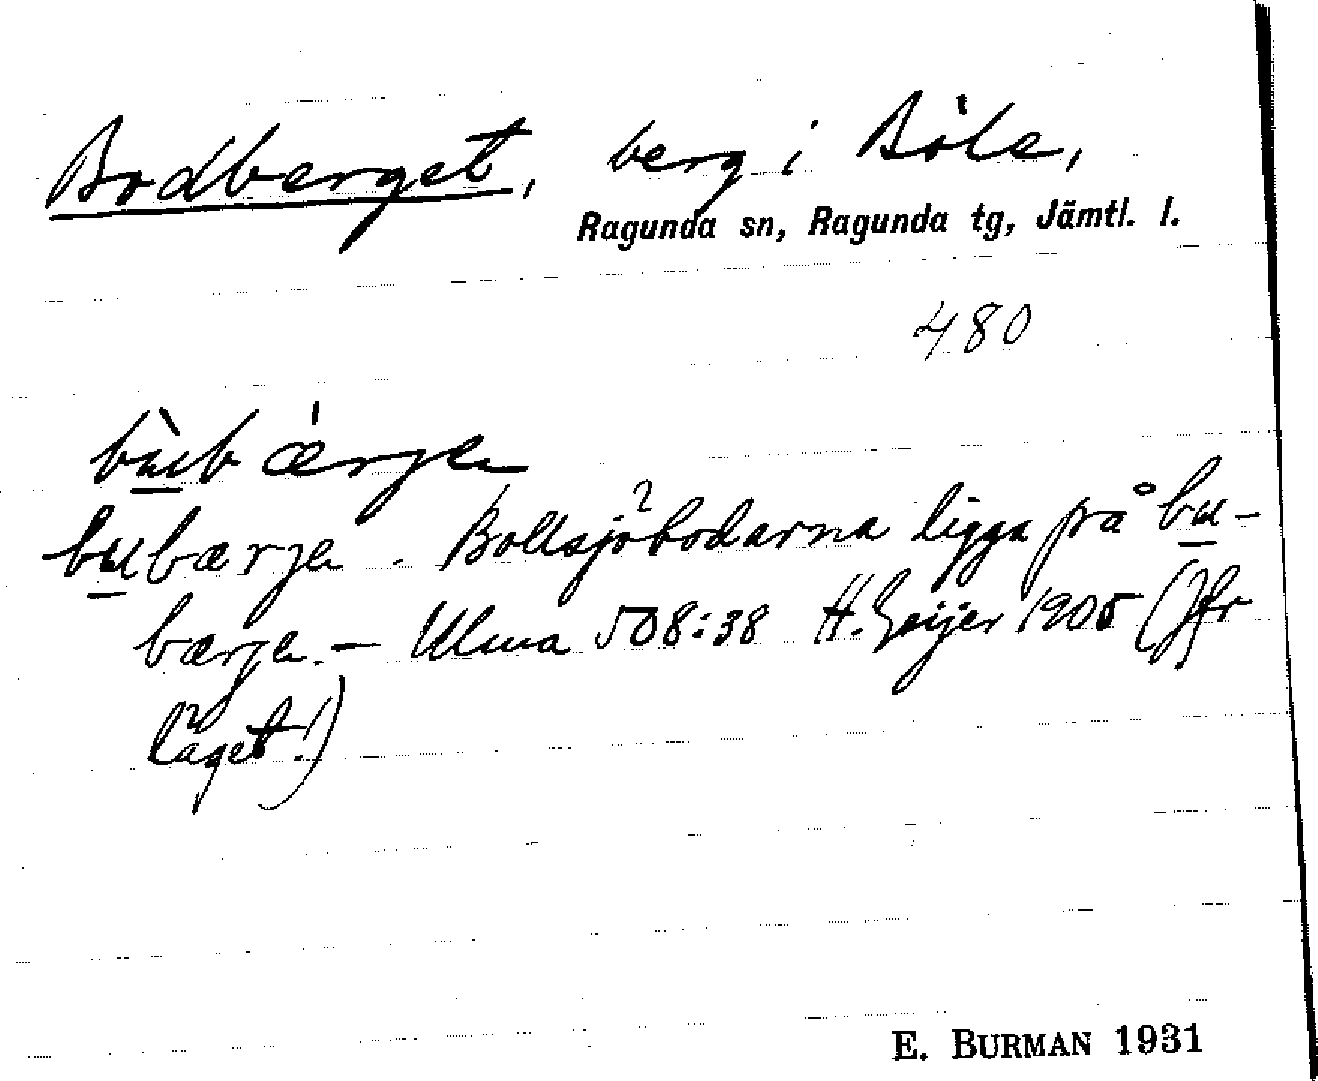 Bodberget, berg i Böle,
Ragunda sn, Ragunda tg, Jämtl. l.
480
bùbǽrjen
bubærjen. Bollsjöbodarna ligga på bu-
bærjen. – Ulma 508:38 H. Geijer 1905 (Jfr
läget!)
E. BURMAN 1931